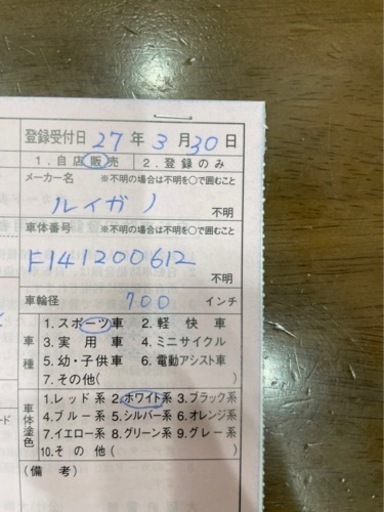 登録受付日 27年3月30日
1.自店販売 2.登録のみ
メーカー名 ※不明の場合は不明を○で囲むこと
ルイガノ 不明
車体番号 ※不明の場合は不明を○で囲むこと
F141200612 不明
車輪径 700 インチ
車種
1.スポーツ車 2.軽快車
3.実用車 4.ミニサイクル
5.幼・子供車 6.電動アシスト車
7.その他( )
車体塗色
1.レッド系 2.ホワイト系 3.ブラック系
4.ブルー系 5.シルバー系 6.オレンジ系
7.イエロー系 8.グリーン系 9.グレー系
10.その他( )
(備考)